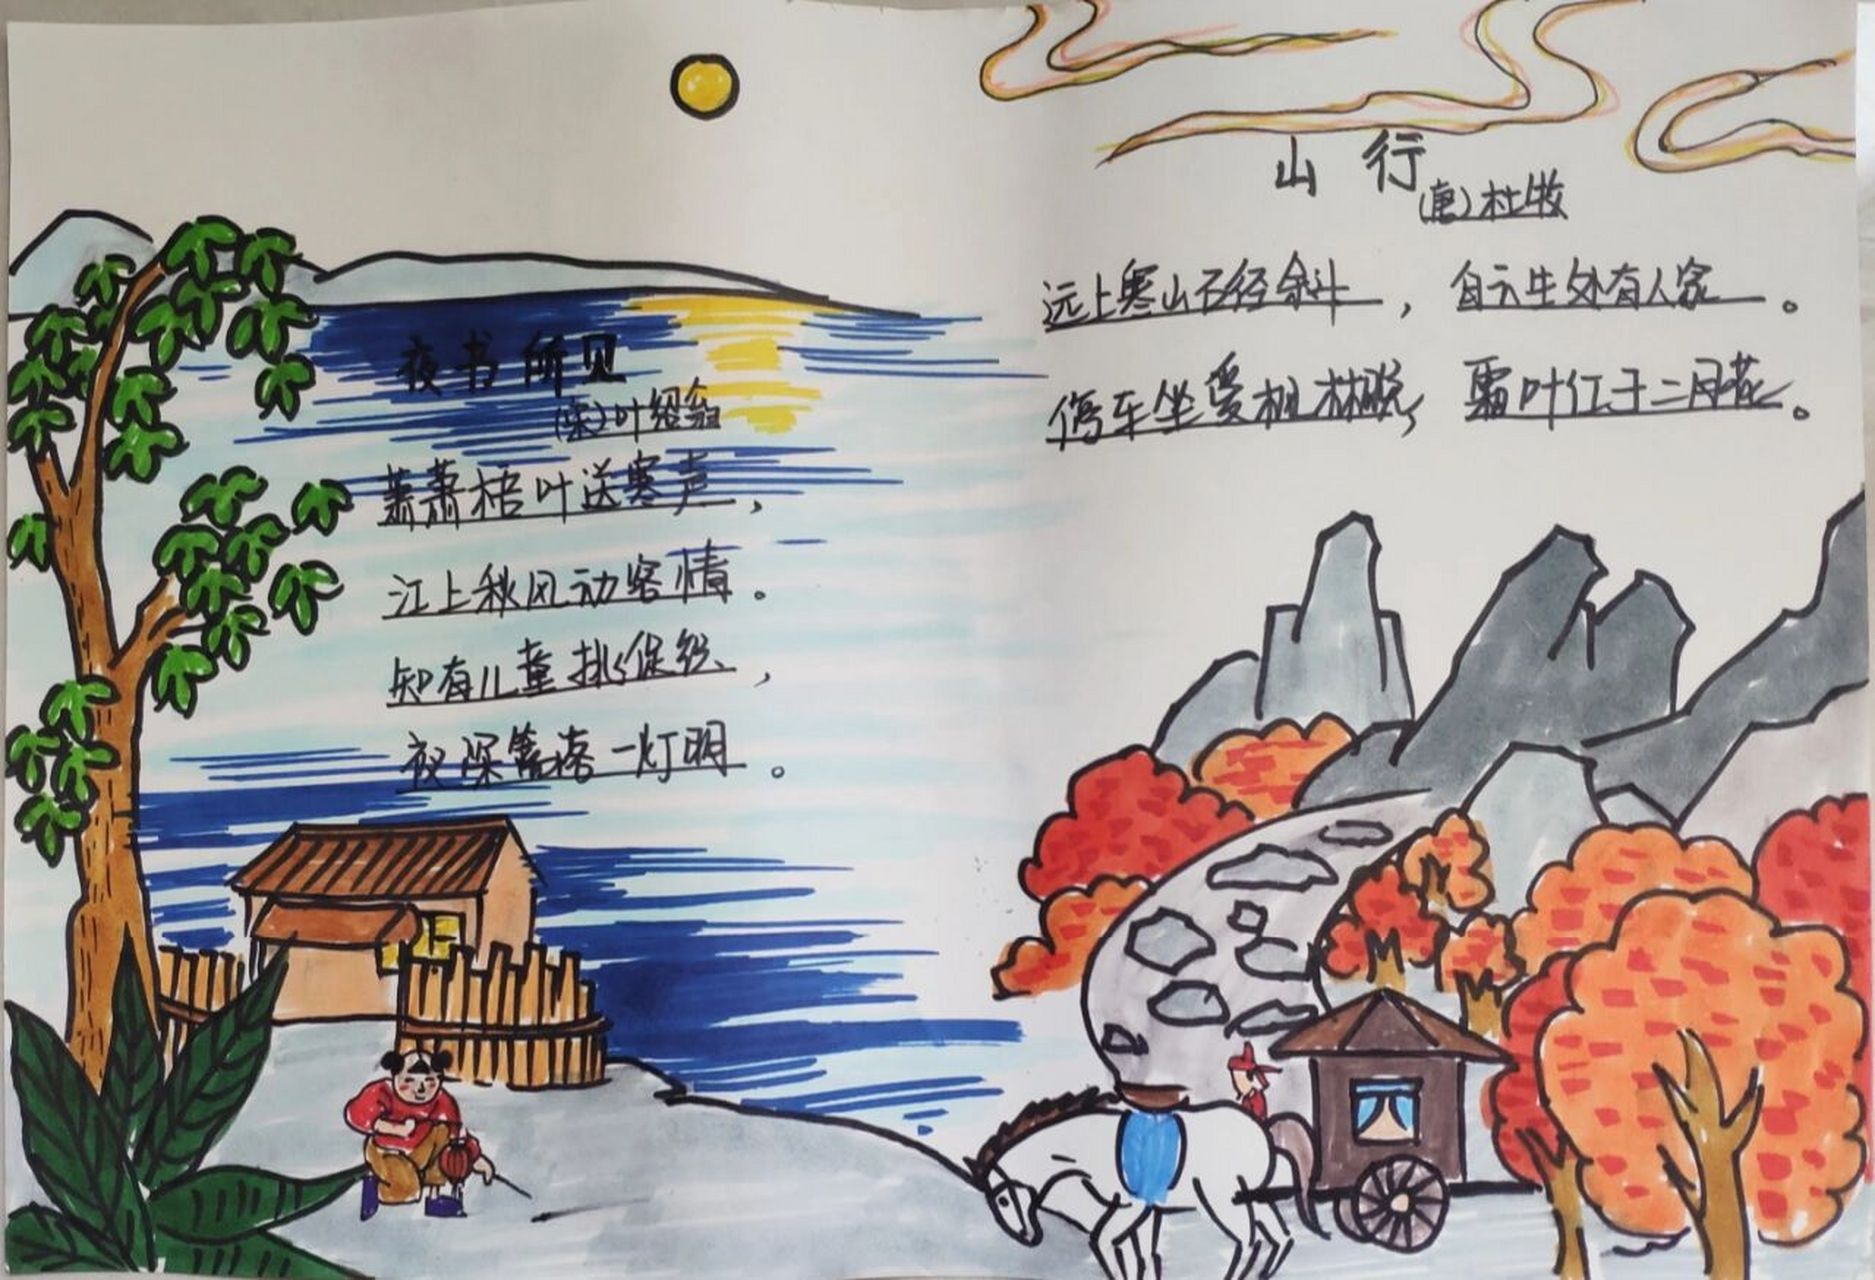 夜书所见
(宋)叶绍翁
萧萧梧叶送寒声，
江上秋风动客情。
知有儿童挑促织，
夜深篱落一灯明。
山行
(唐)杜牧
远上寒山石径斜，白云生处有人家。
停车坐爱枫林晚，霜叶红于二月花。